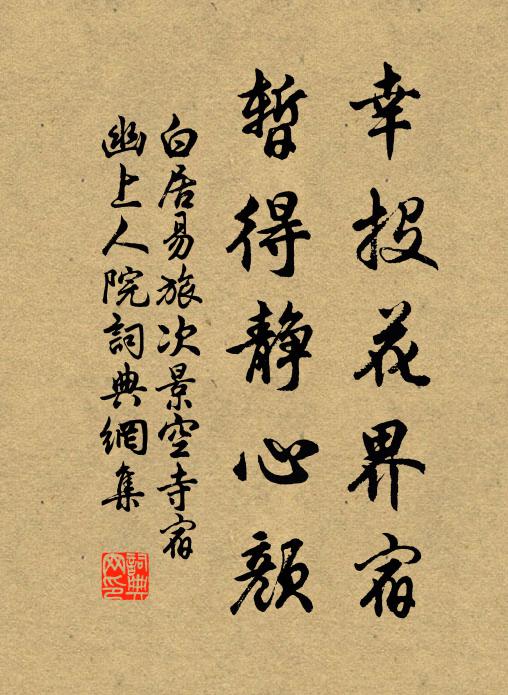 幸投花界宿
暫得靜心顏
白居易旅次景空寺宿
幽上人院詞典網集
詞典
网印